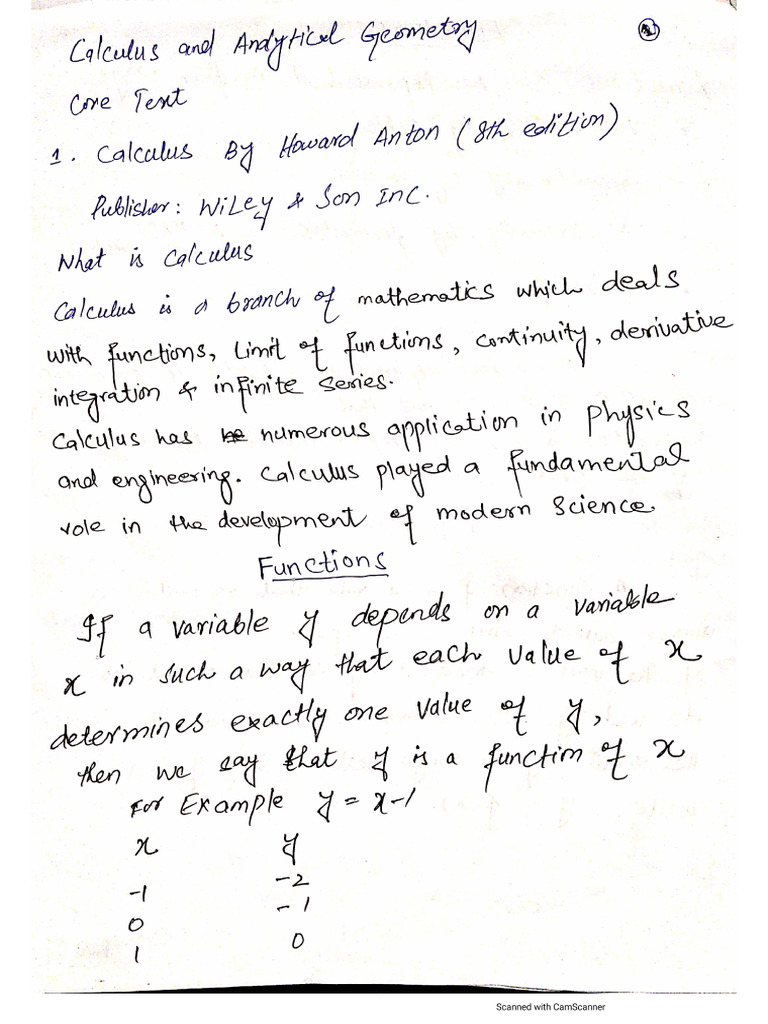 Calculus and Analytical Geometry
Core Text
1. Calculus By Howard Anton (8th edition)
Publisher: Wiley & Son Inc.
What is Calculus
Calculus is a branch of mathematics which deals
with functions, Limit of functions, continuity, derivative
integration & infinite series.
Calculus has numerous application in physics
and engineering. Calculus played a fundamental
role in the development of modern Science.
Functions
If a variable y depends on a variable
x in such a way that each value of x
determines exactly one value of y,
then we say that y is a function of x
For Example y = x-1
x y
-1 -2
0 -1
1 0
Scanned with CamScanner